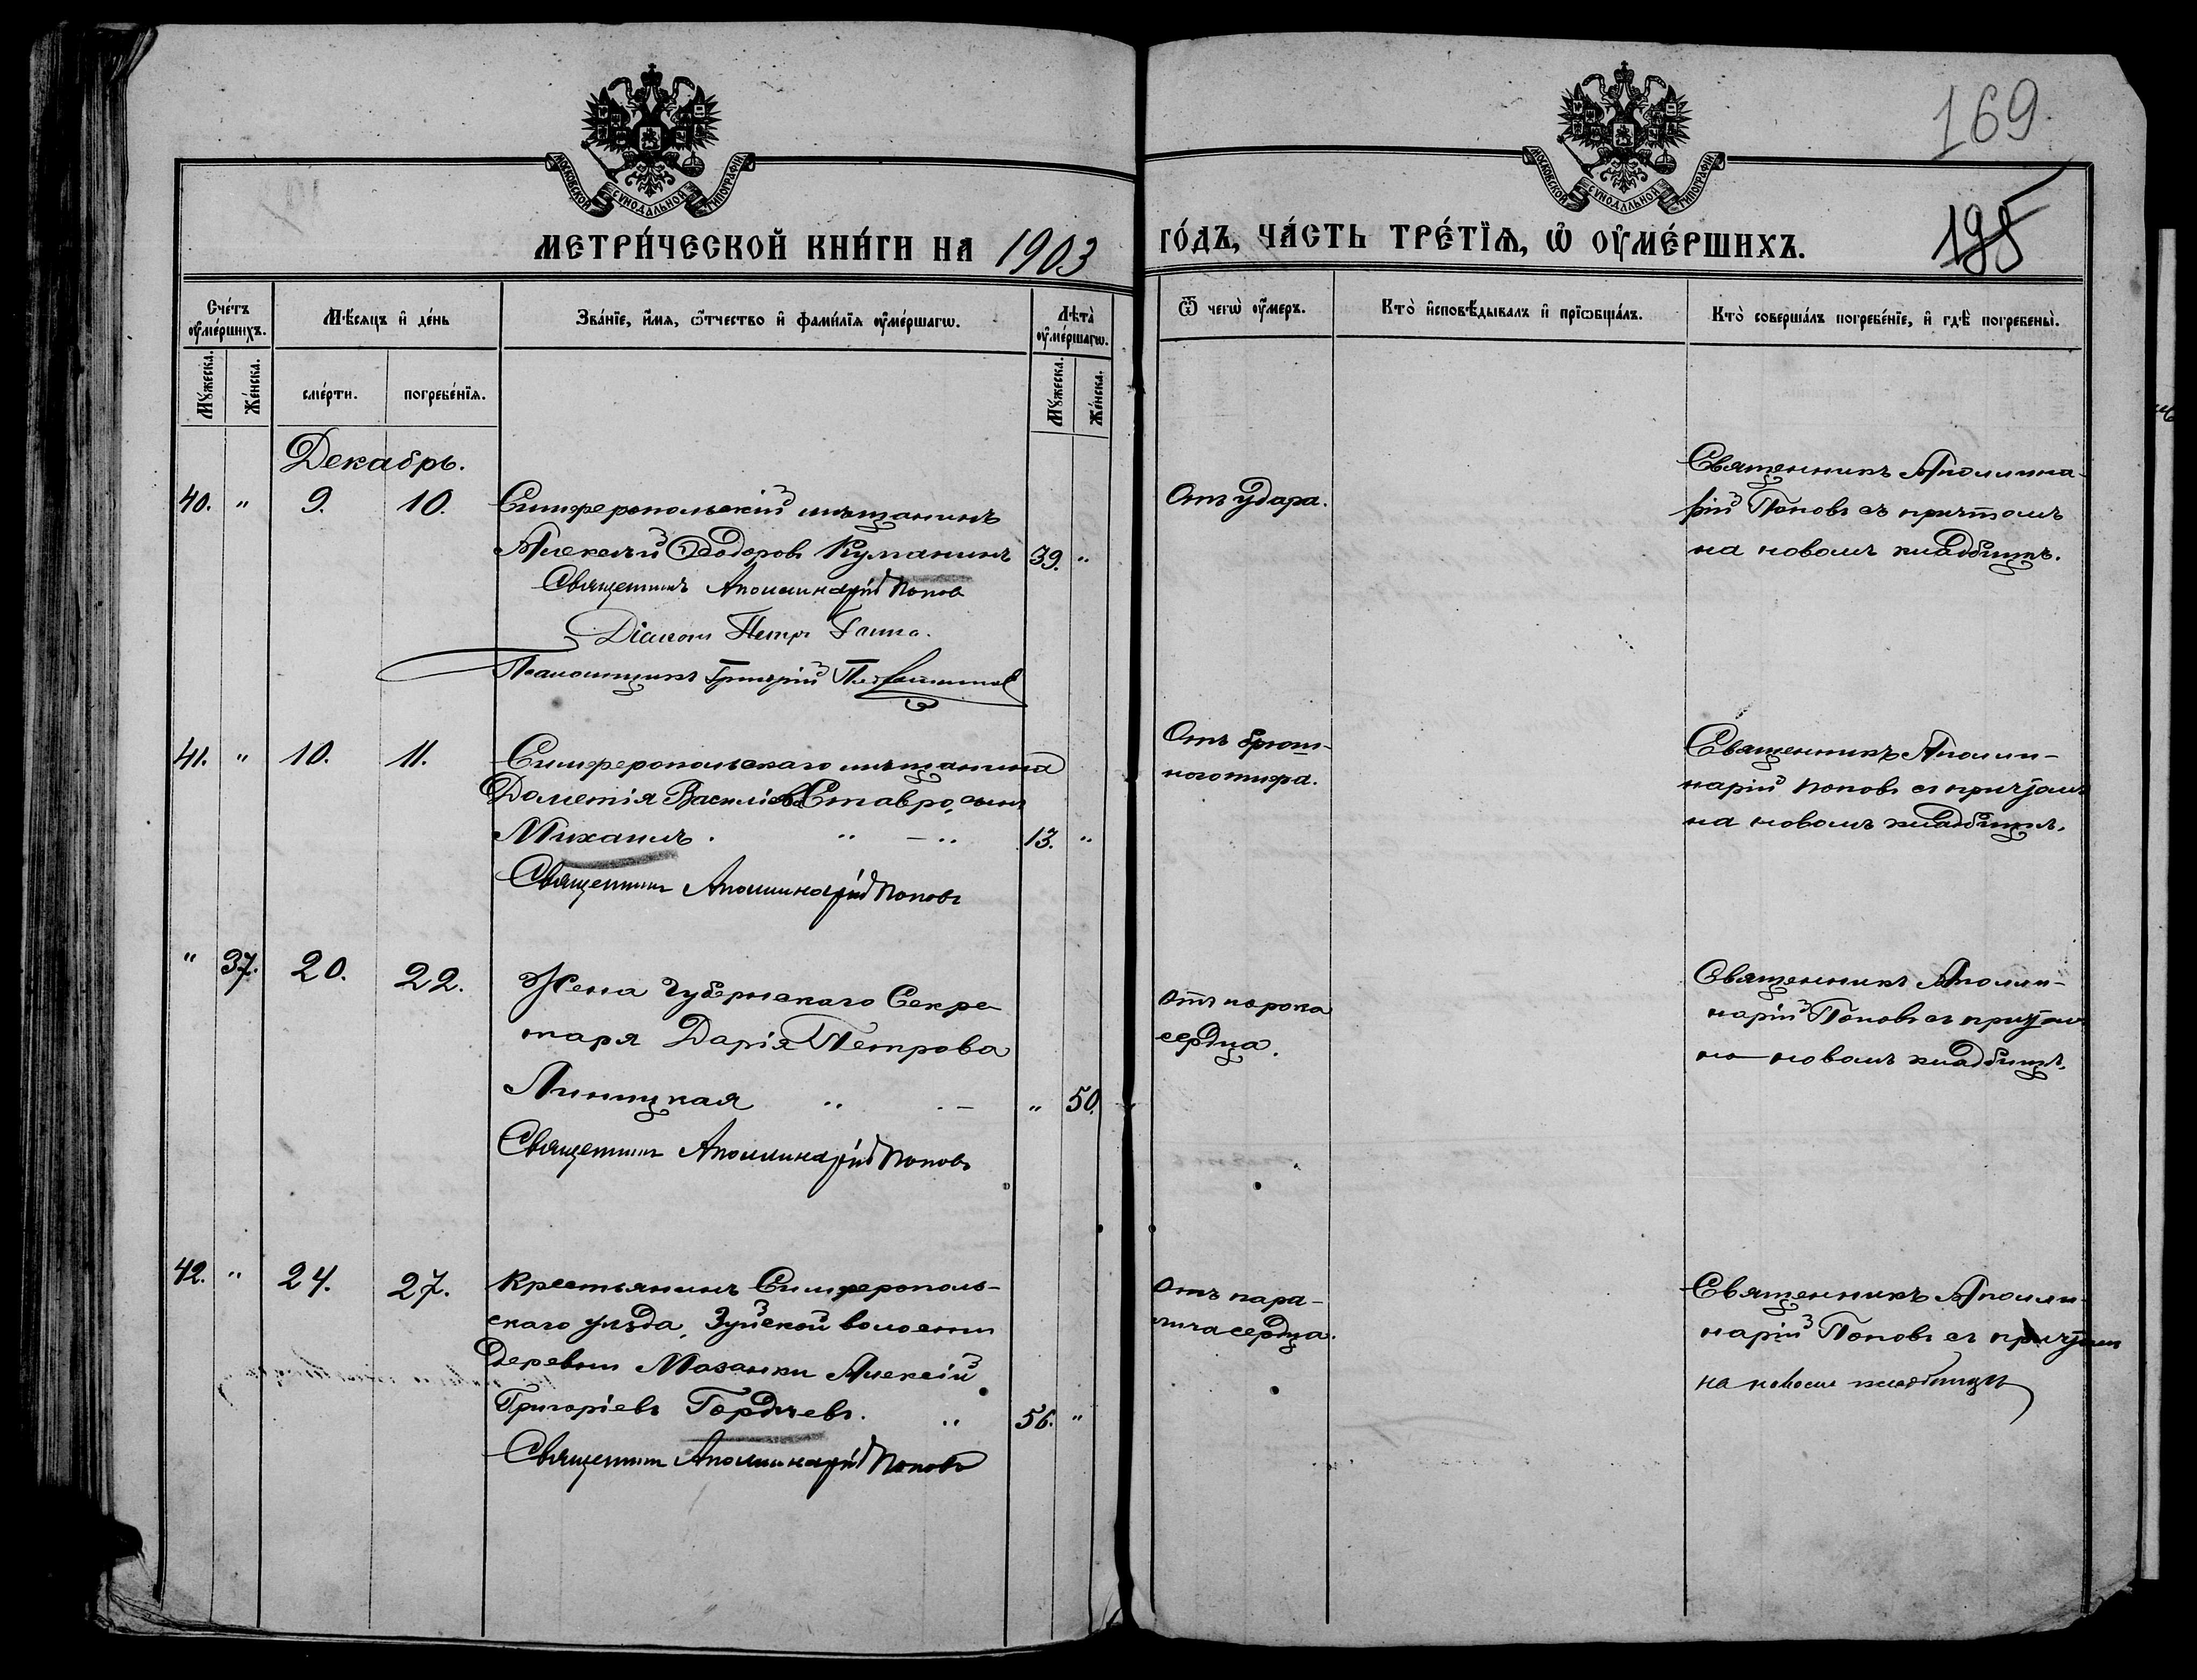 МОСКОВСКОЙ СѴНОДАЛЬНОЙ ТИПОГРАФІИ
МОСКОВСКОЙ СѴНОДАЛЬНОЙ ТИПОГРАФІИ
169.
195
МЕТРИ́ЧЕСКОЙ КНИ́ГИ НА 1903 ГО́ДЪ, ЧА́СТЬ ТРЕ́ТЇѦ, Ѡ҆ ОУ҆МЕ́РШИХЪ.
Сче́тъ оу҆ме́ршихъ.
Мꙋ́жеска.
Же́нска.
Мѣ́сяцъ и҆ де́нь
сме́рти.
погребе́нїя.
Зва́нїе, и҆́мя, ѻ҆́тчество и҆ фами́лїя оу҆ме́ршагѡ.
Лѣ́та оу҆ме́ршагѡ.
Мꙋ́жеска.
Же́нска.
Ѿ чегѡ̀ оу҆́меръ.
Кто̀ и҆сповѣ́дывалъ и҆ прїѡбща́лъ.
Кто̀ соверша́лъ погребе́нїе, и҆ гдѣ̀ погребены̀.
Декабрь.
40. " 9. 10.
Симферопольскій мѣщанинъ
Алексѣй Ѳеодоровъ Куманинъ 39. "
Священникъ Аполлинарій Попов
Діаконъ Петръ
Псаломщикъ Григорій
Отъ удара.
Священникъ Аполлина-
рій Поповъ съ причтомъ
на новомъ кладбищѣ.
41. " 10. 11.
Симферопольскаго мѣщанина
Дометія Василіева Ставро, сынъ
Михаилъ. " — " 13. "
Священникъ Аполлинарій Поповъ
Отъ брюш-
ного тифа.
Священникъ Аполли-
нарій Поповъ съ причтомъ
на новомъ кладбищѣ.
" 37. 20. 22.
Жена Губернскаго Секре-
таря Дарія Петрова
Линицкая " — " 50.
Священникъ Аполлинарій Поповъ
Отъ порока
сердца.
Священникъ Аполли-
нарій Поповъ съ причтом
на новомъ кладбищѣ.
42. " 24. 27.
Крестьянинъ Симферополь-
скаго уѣзда, Зуйской волости
деревни Мазанки Алексій
Григоріевъ Гордѣевъ. " 56. "
Священникъ Аполлинарій Поповъ
Отъ пара-
лича сердца.
Священникъ Аполли-
нарій Поповъ съ причтом
на новомъ кладбищѣ